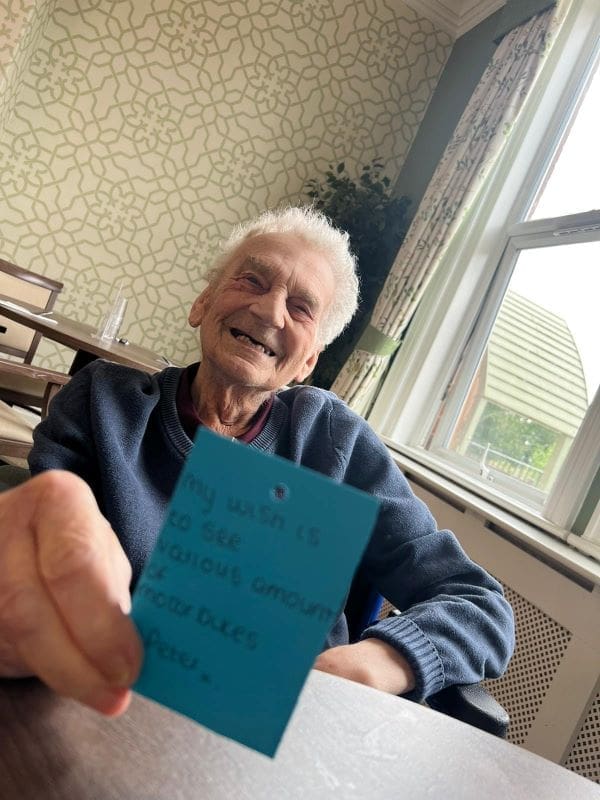 My wish is
to see
various amount
of
motorbikes
Peter x.